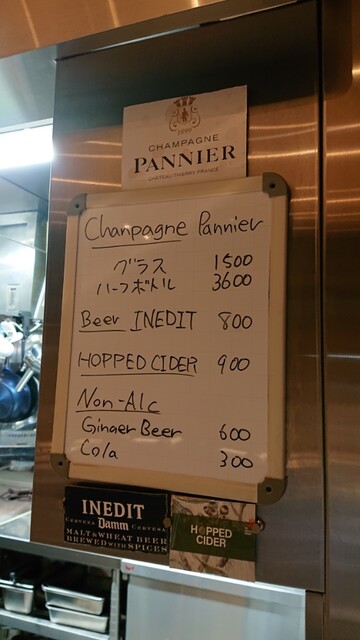 1899
CHAMPAGNE
PANNIER
CHATEAU-THIERRY FRANCE
Chanpagne Pannier
グラス 1500
ハーフボトル 3600
Beer INEDIT 800
HOPPED CIDER 900
Non-Alc
Ginger Beer 600
Cola 300
INEDIT
CERVEZA Damm CERVEZA
MALT & WHEAT BEER
BREWED WITH SPICES
HOPPED
CIDER